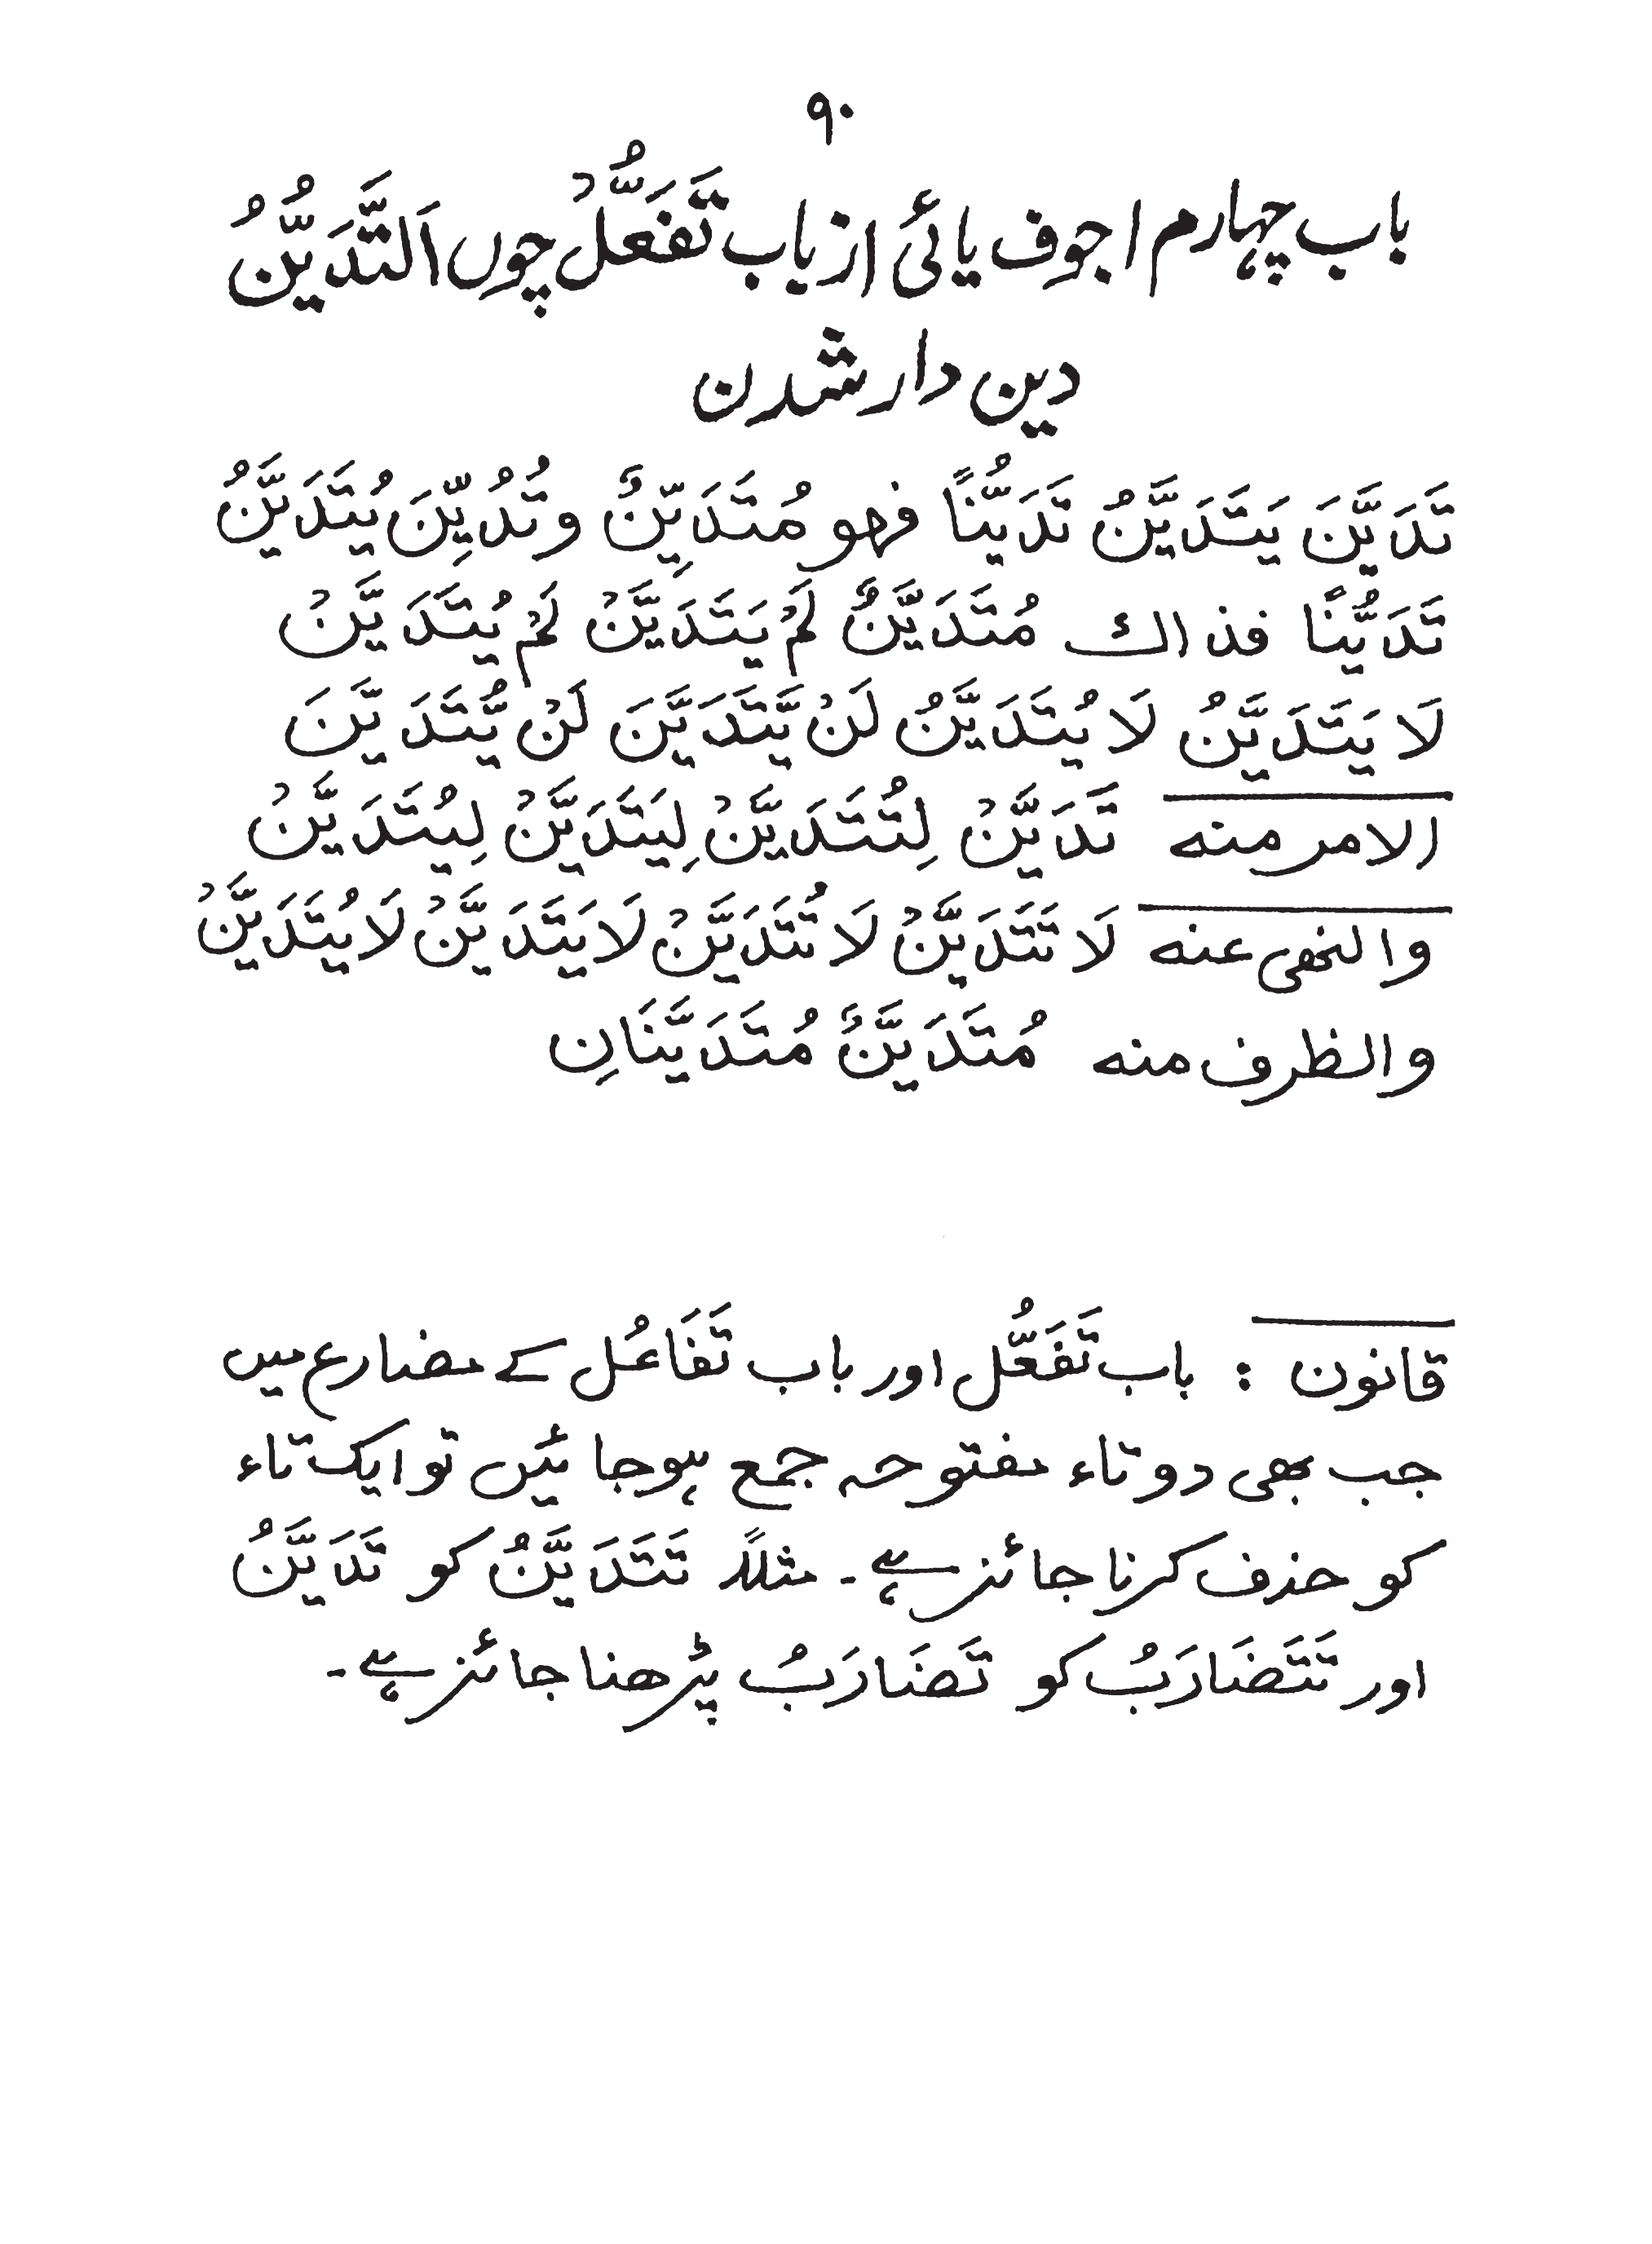 ۹۰
باب چہارم اجوف یائی از باب تَفَعُّلْ چوں اَلتَّدَیُّنُ
دین دار شدن
تَدَیَّنَ یَتَدَیَّنُ تَدَیُّنًا فہو مُتَدَیِّنٌ و تُدُیِّنَ یُتَدَیَّنُ
تَدَیُّنًا فذاك مُتَدَیَّنٌ لَمْ یَتَدَیَّنْ لَمْ یُتَدَیَّنْ
لَا یَتَدَیَّنُ لَا یُتَدَیَّنُ لَنْ یَّتَدَیَّنَ لَنْ یُّتَدَیَّنَ
الامر منه تَدَیَّنْ لِتُتَدَیَّنْ لِیَتَدَیَّنْ لِیُتَدَیَّنْ
والنھی عنه لَا تَتَدَیَّنْ لَا تُتَدَیَّنْ لَا یَتَدَیَّنْ لَا یُتَدَیَّنْ
والظرف منه مُتَدَیَّنٌ مُتَدَیَّنَانِ
قانون : باب تَفَعُّل اور باب تَفَاعُل کے مضارع میں
جب بھی دو تاء مفتوحہ جمع ہوجائیں تو ایک تاء
کو حذف کرنا جائز ہے۔ مثلاً تَتَدَیَّنُ کو تَدَیَّنُ
اور تَتَضَارَبُ کو تَضَارَبُ پڑھنا جائز ہے۔